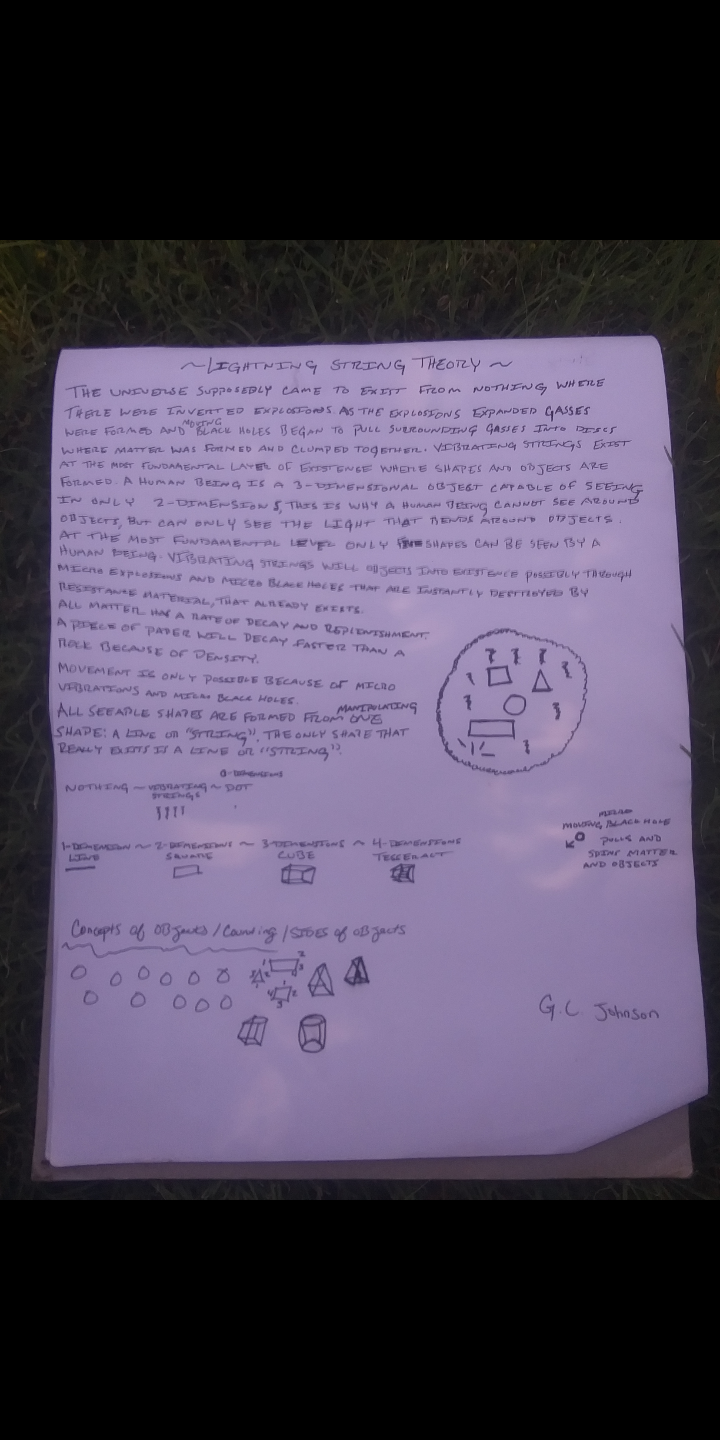 ~LIGHTNING STRING THEORY~
THE UNIVERSE SUPPOSEDLY CAME TO EXIST FROM NOTHING WHERE
THERE WERE INVERTED EXPLOSIONS. AS THE EXPLOSIONS EXPANDED GASSES
WERE FORMED AND MOVING BLACK HOLES BEGAN TO PULL SURROUNDING GASSES INTO DISCS
WHERE MATTER WAS FORMED AND CLUMPED TOGETHER. VIBRATING STRINGS EXIST
AT THE MOST FUNDAMENTAL LAYER OF EXISTENSE WHERE SHAPES AND OBJECTS ARE
FORMED. A HUMAN BEING IS A 3-DIMENSIONAL OBJECT CAPABLE OF SEEING
IN ONLY 2-DIMENSIONS, THIS IS WHY A HUMAN BEING CANNOT SEE AROUND
OBJECTS, BUT CAN ONLY SEE THE LIGHT THAT BENDS AROUND OBJECTS.
AT THE MOST FUNDAMENTAL LEVEL ONLY SHAPES CAN BE SEEN BY A
HUMAN BEING. VIBRATING STRINGS WILL OBJECTS INTO EXISTENCE POSSIBLY THROUGH
MICRO EXPLOSIONS AND MICRO BLACK HOLES THAT ARE INSTANTLY DESTROYED BY
RESISTANCE MATERIAL, THAT ALREADY EXISTS.
ALL MATTER HAS A RATE OF DECAY AND REPLENISHMENT.
A PIECE OF PAPER WILL DECAY FASTER THAN A
ROCK BECAUSE OF DENSITY.
MOVEMENT IS ONLY POSSIBLE BECAUSE OF MICRO
VIBRATIONS AND MICRO BLACK HOLES.
ALL SEEABLE SHAPES ARE FORMED FROM MANIPULATING ONE
SHAPE: A LINE OR "STRING". THE ONLY SHAPE THAT
REALLY EXISTS IS A LINE OR "STRING".
0-DIMENSIONS
NOTHING ~ VIBRATING STRINGS ~ DOT
1-DIMENSION ~ 2-DIMENSIONS ~ 3-DIMENSIONS ~ 4-DIMENSIONS
LINE SQUARE CUBE TESSERACT
MICRO
MOVING BLACK HOLE
PULLS AND
SPINS MATTER
AND OBJECTS
Concepts of OBJects / Counting / SIDES of OBJects
G.C. Johnson